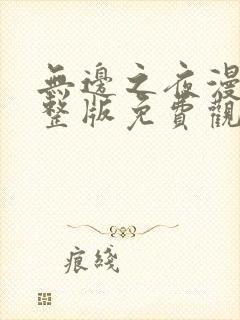 無邊之夜漫
整版免費觀
痕綫